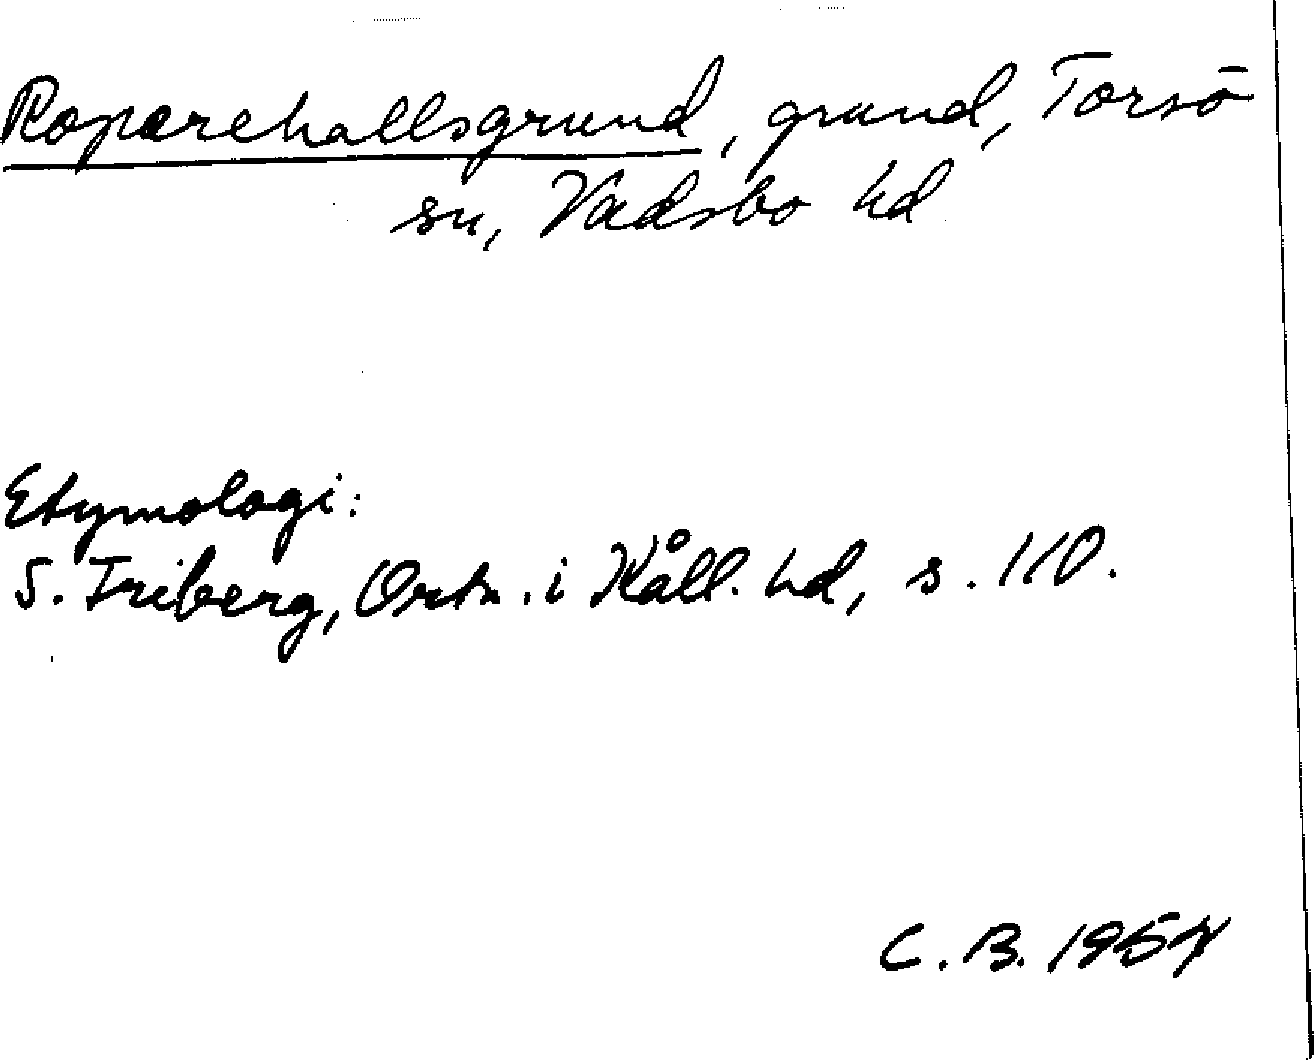 Roparehallsgrund, grund, Torsö
sn, Vadsbo hd
Etymologi:
S. Friberg, Ortn. i Kåll. hd, s. 110.
C. B. 1957